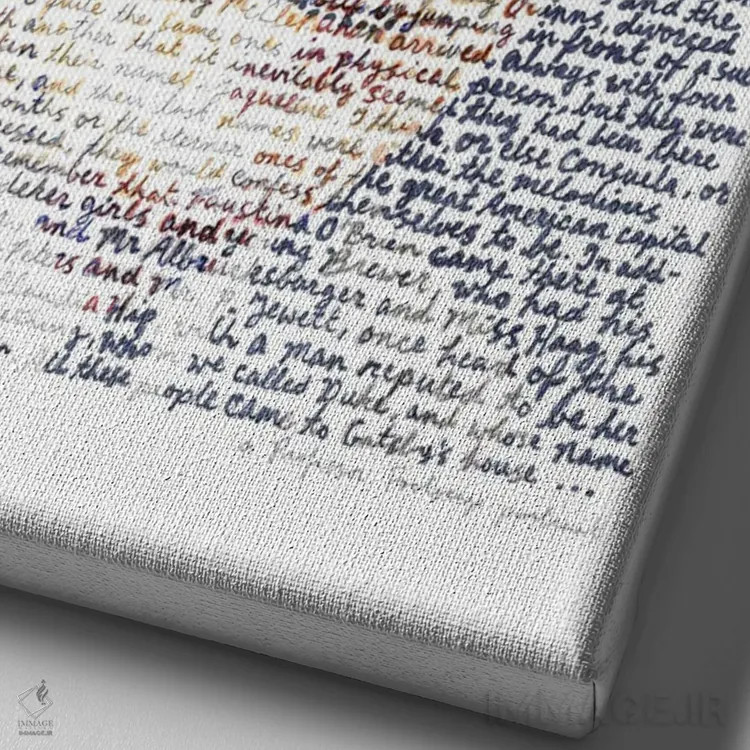 inns, and the
by jumping in front of a su
McClenahan arrived always with four
quite the same ones in physical person, but they were
another that it inevitably seemed they had been there
their names - Jaqueline I think, or else Consuela, or
and their last names were either the melodious
onths or the sterner ones of the great American capital
essed, they would confess themselves to be. In add-
emember that Faustina O'Brien came there at
deker girls and young Brewer, who had his
and Mr Albrucksburger and Miss Haag, his
Peters and Mr. P. Jewett, once head of the
a Hip with a man reputed to be her
who we called Duke, and whose name
ll these people came to Gatsby's house ...
IMMAGE
IMMAGE.IR
IMMAGE.IR